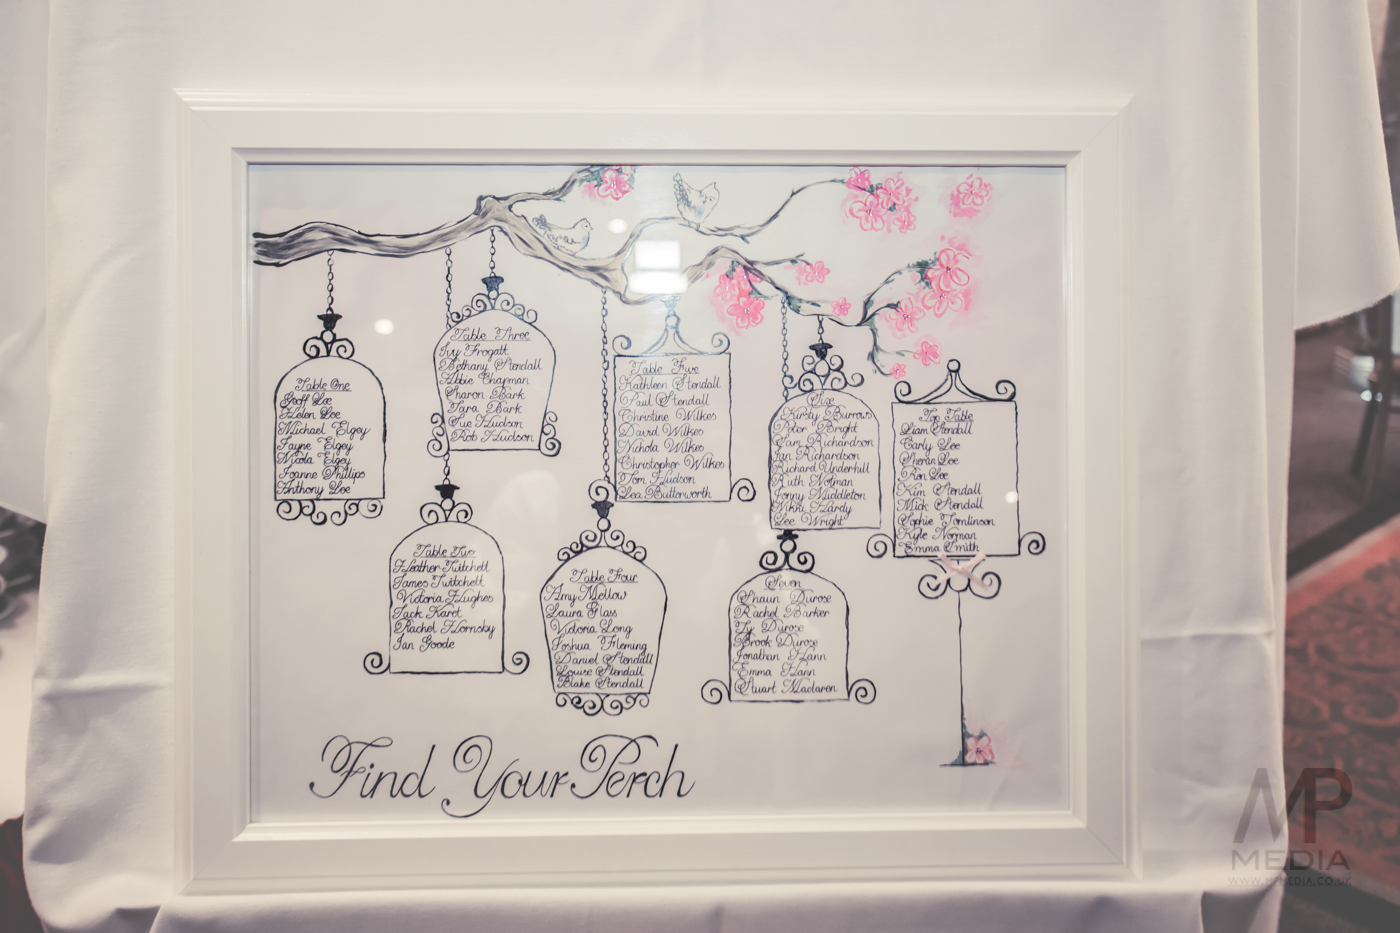 Table One
Geoff Lee
Helen Lee
Michael Elgey
Jayne Elgey
Nicola Elgey
Joanne Phillips
Anthony Lee
Table Two
Heather Twitchett
James Twitchett
Victoria Hughes
Jack Karet
Rachel Hornsby
Ian Goode
Table Three
Ivy Frogatt
Bethany Stendall
Abbie Chapman
Sharon Bark
Tara Bark
Sue Hudson
Rob Hudson
Table Four
Amy Mellow
Laura Glass
Victoria Long
Joshua Fleming
Daniel Stendall
Louise Stendall
Blake Stendall
Table Five
Kathleen Stendall
Paul Stendall
Christine Wilkes
David Wilkes
Nichola Wilkes
Christopher Wilkes
Tom Hudson
Lea Butterworth
Six
Kirsty Burrows
Peter Bright
Sam Richardson
Ian Richardson
Richard Underhill
Ruth Notman
Jonny Middleton
Nikki Hardy
Lee Wright
Seven
Shaun Durose
Rachel Barker
Ty Durose
Brook Durose
Jonathan Hann
Emma Hann
Stuart Maclaren
Top Table
Liam Stendall
Carly Lee
Sheran Lee
Ron Lee
Kim Stendall
Mick Stendall
Sophie Tomlinson
Kyle Norman
Emma Smith
Find Your Perch
MP
MEDIA
WWW.MPMEDIA.CO.UK